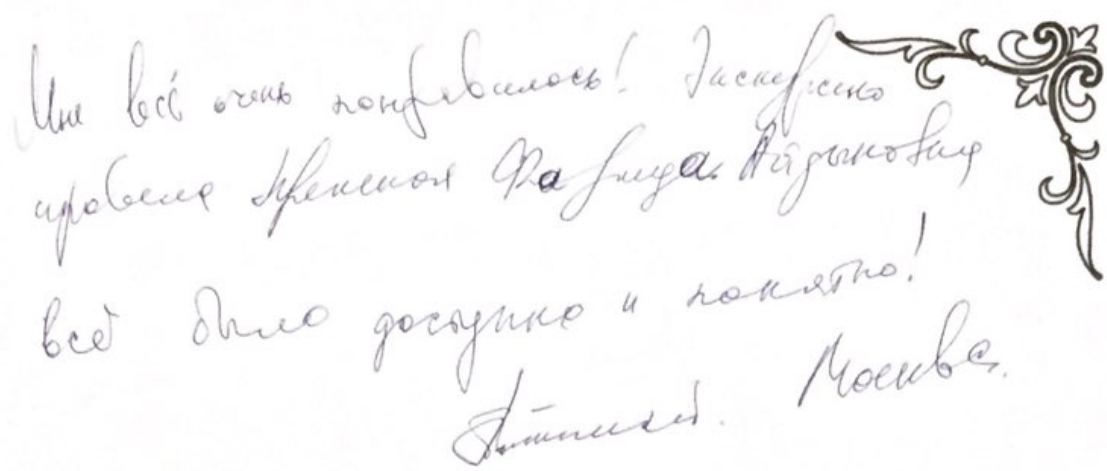 Мне всё очень понравилось! Экскурсию
провела Фарида Айдыновна
всё было доступно и понятно!
Москва.